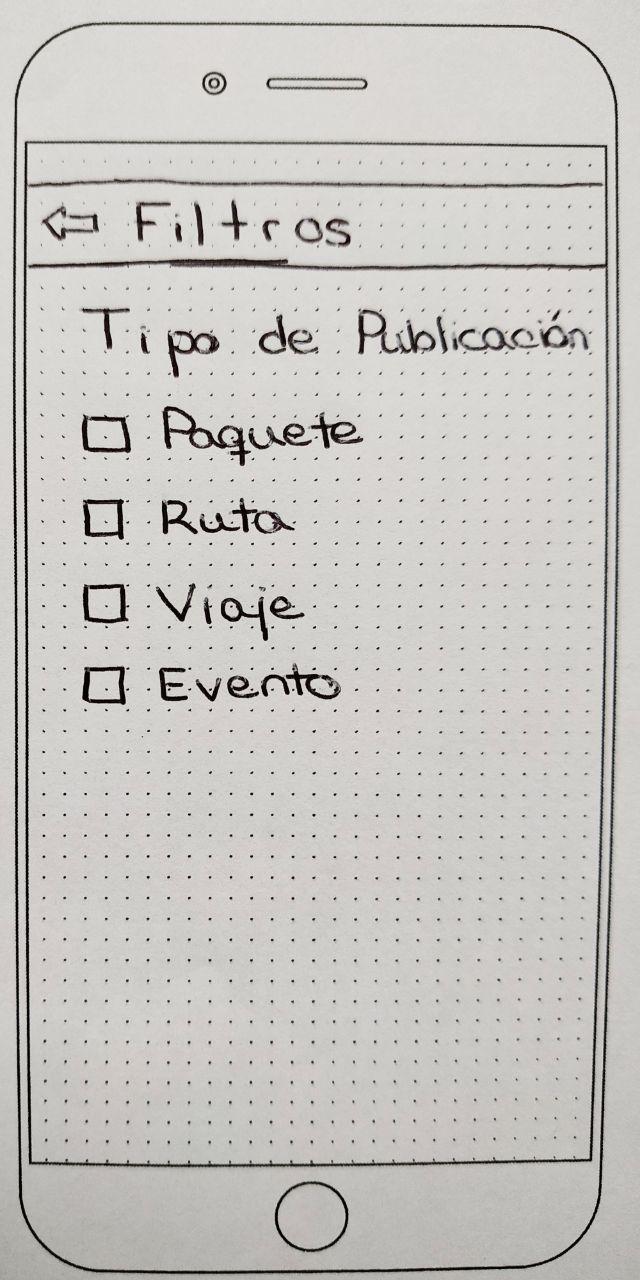 Filtros
Tipo de Publicación
Paquete
Ruta
Viaje
Evento